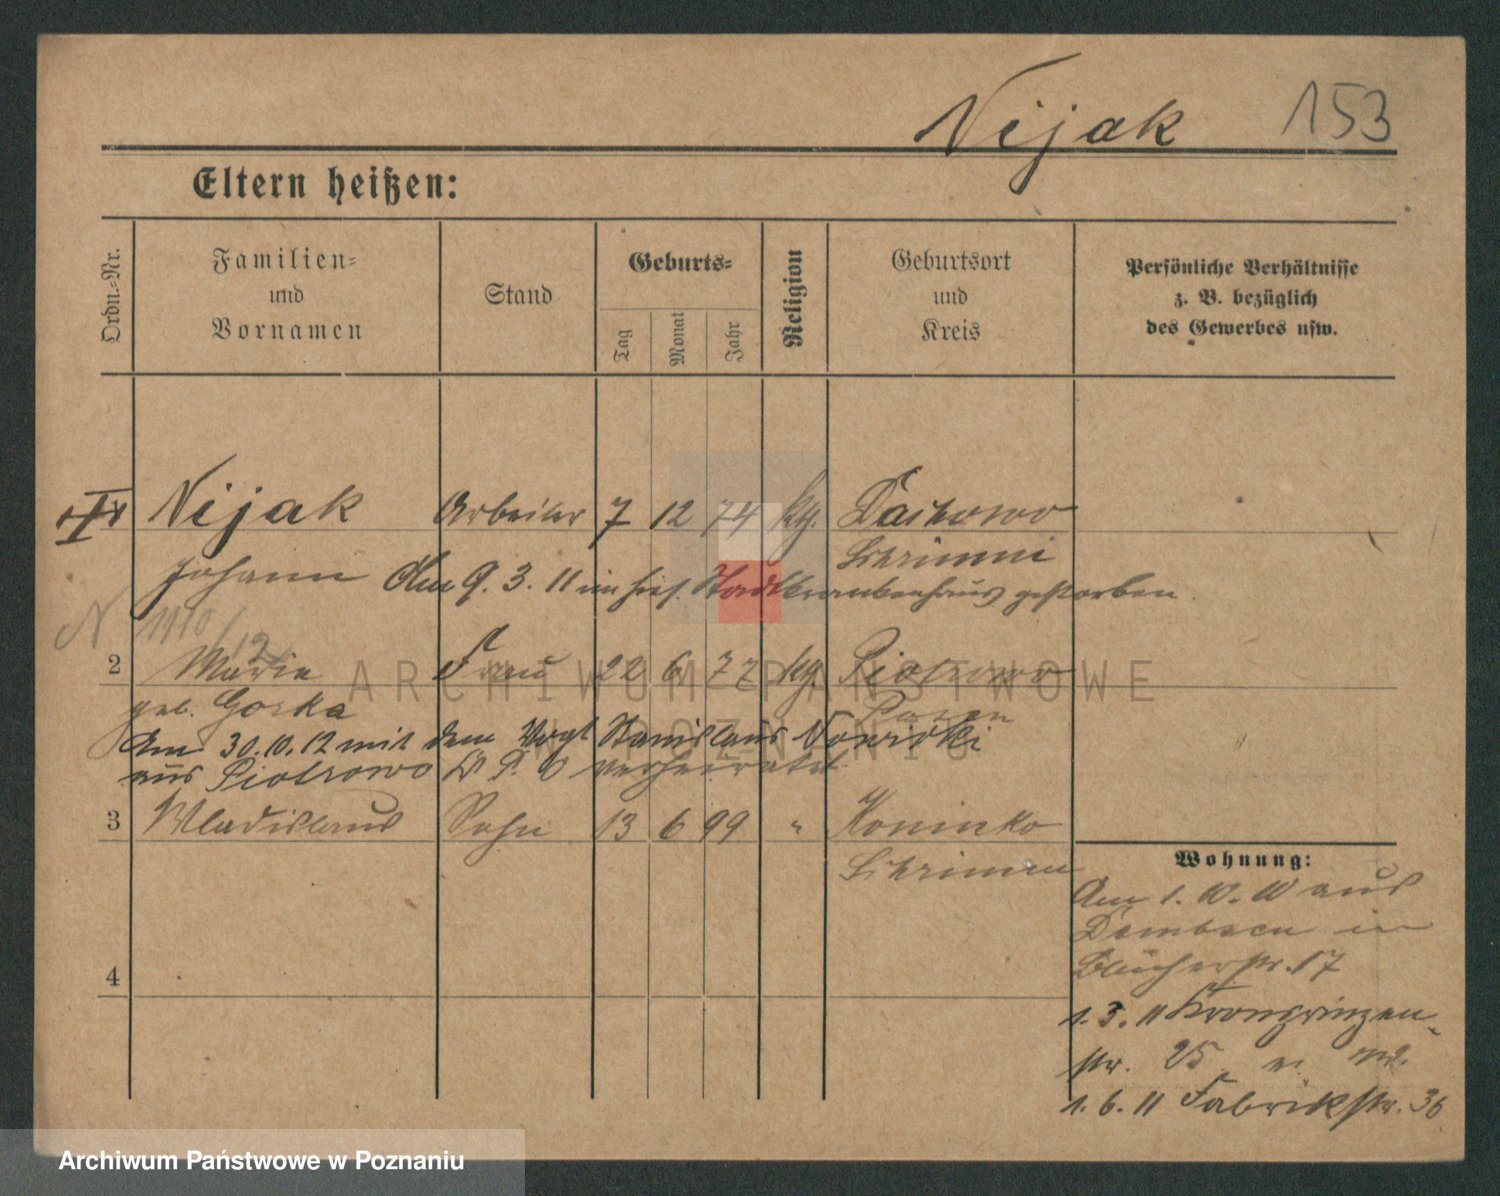 Nijak 153
Eltern heißen:
Ordn.-Nr.
Familien-
und
Vornamen
Stand
Geburts-
Tag
Monat
Jahr
Religion
Geburtsort
und
Kreis
Persönliche Verhältnisse
z. B. bezüglich
des Gewerbes usw.
Nijak Arbeiter 7 12 74 kg.
Schrimm
Johann Am 9. 3. 11 im hies. Stadtkrankenhaus gestorben.
N 1910/12
2 Marie Frau 22 6 77 kg. Piotrowo
geb. Gorka Posen
Am 30.10.12 mit dem Vogt Stanislaus Nowicki
aus Piotrowo verheiratet.
3 Wladislaus Sohn 13 6 99 " Koninko
Schrimm
4
Wohnung:
Am 1. 10. 10 aus
Dembsen in
Blücherstr. 17
1. 3. 11 Kronprinzen-
str. 25
1. 6. 11 Fabrikstr. 36
ARCHIWUM PAŃSTWOWE
W POZNANIU
Archiwum Państwowe w Poznaniu